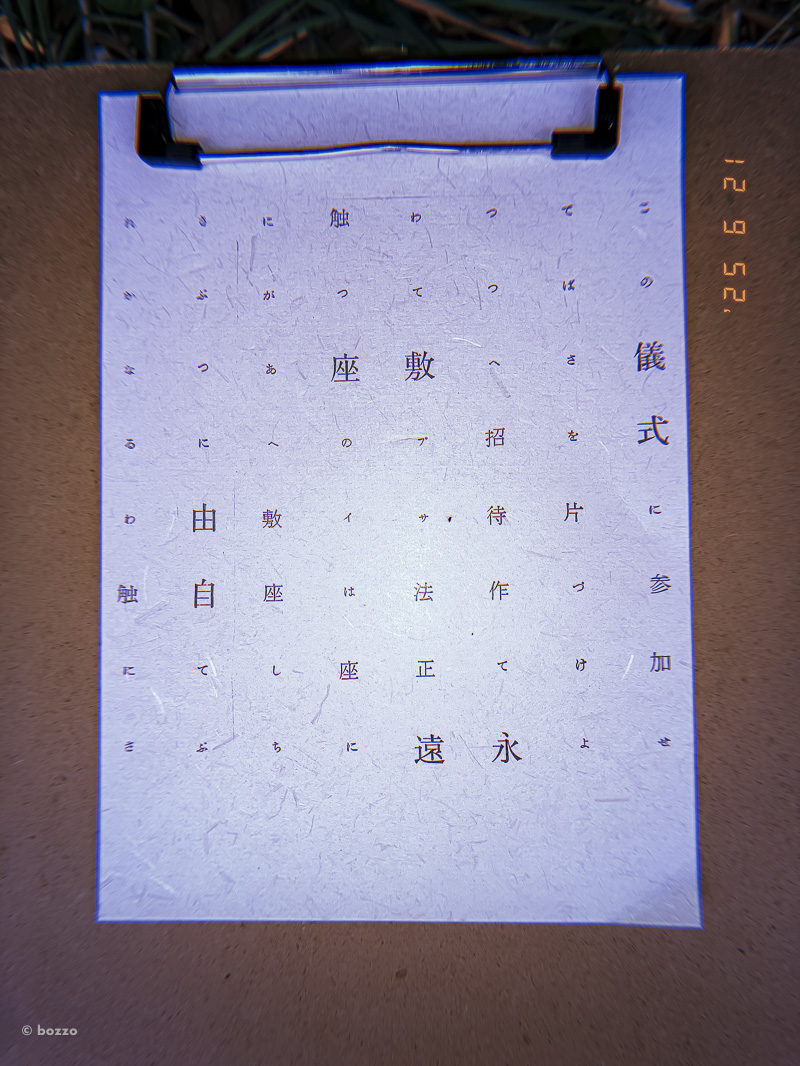 この儀式に参加せ
てばさを片づけよ
つつへ招待作て永
わて敷プサ法正遠
触つ座のイは座に
にがあへ敷座しち
さぶつに由自てぶ
れかなるわ触にさ
'25 9 21
© bozzo